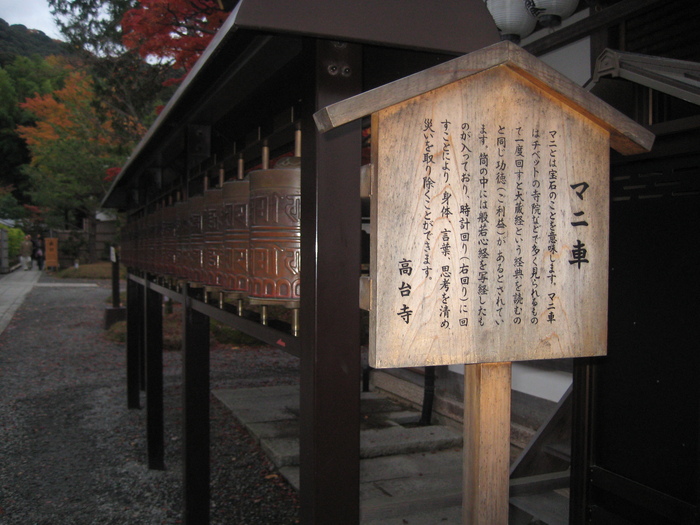 マニ車
マニとは宝石のことを意味します。マニ車
はチベットの寺院などで多く見られるもの
で一度回すと大蔵経という経典を読むの
と同じ功徳(ご利益)があるとされてい
ます。筒の中には般若心経を写経したも
のが入っており、時計回り(右回り)に回
すことにより、身体、言葉、思考を清め、
災いを取り除くことができます。
高台寺